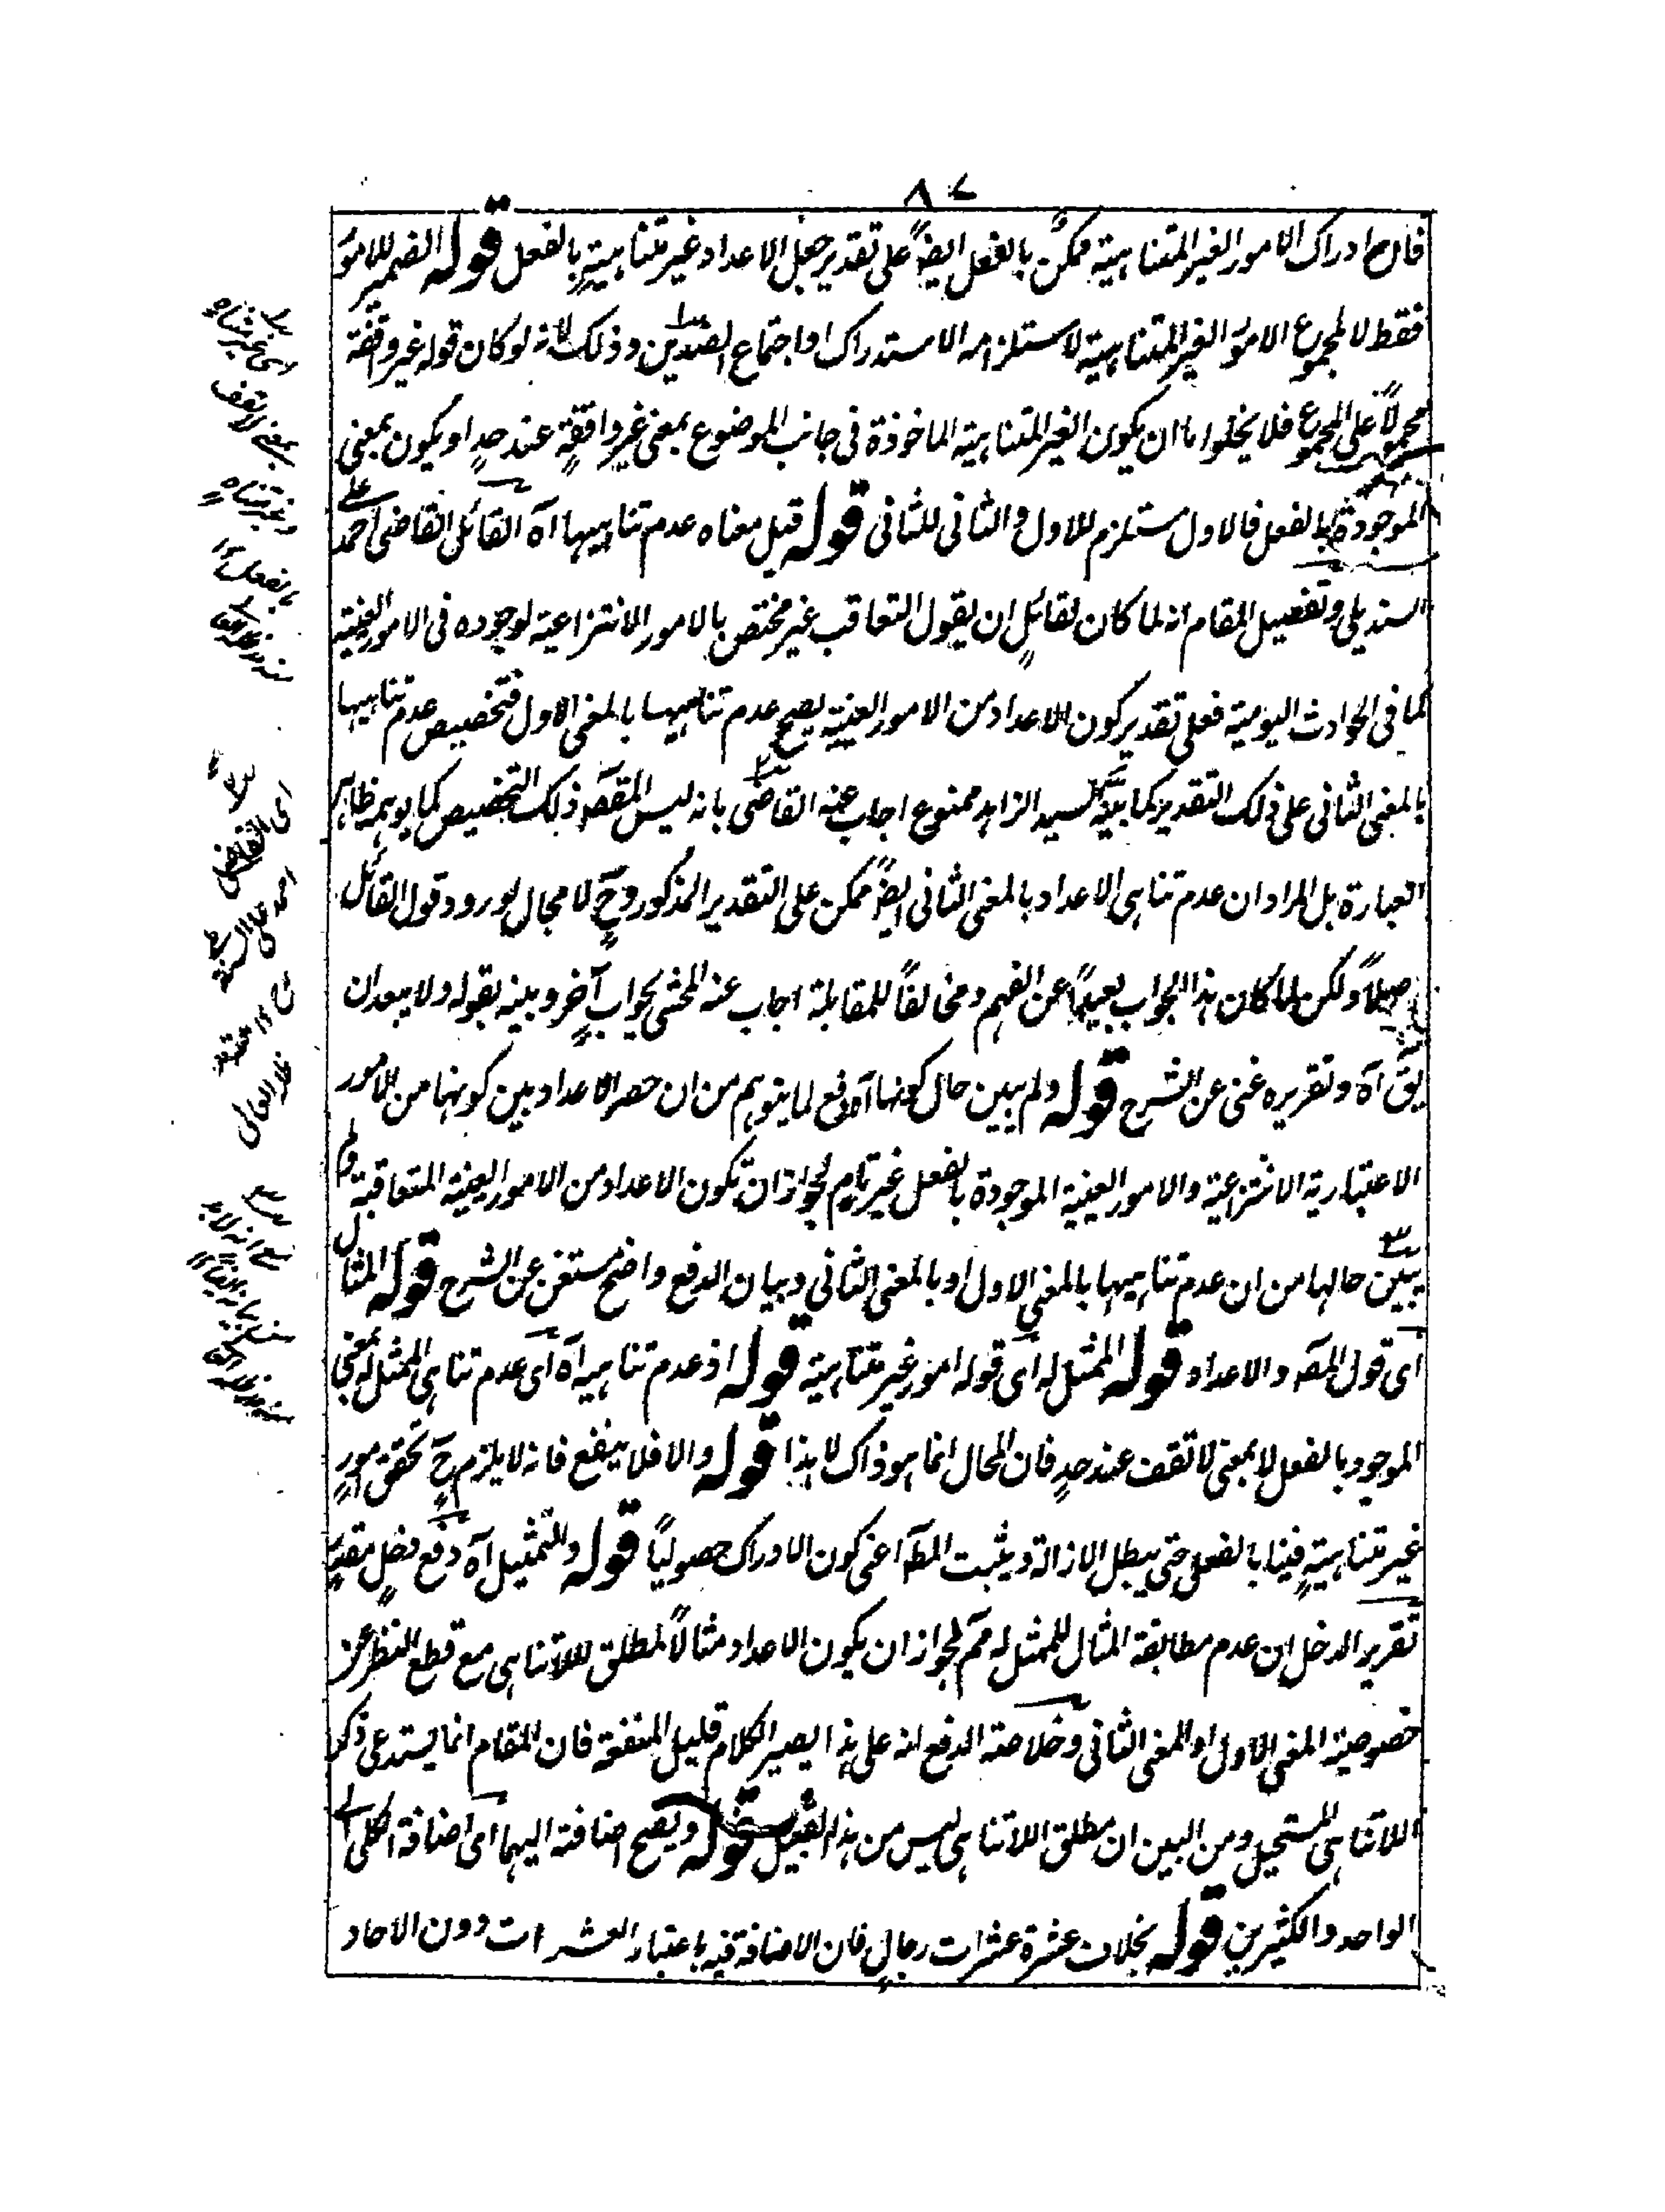 ٨٧
فان ح ادراك الامور الغير المتناهية ممكن بالفعل ايضًا على تقدير جعل الاعداد غير متناهيةٍ بالفعل قوله الضمير للامور
فقط لا لمجموع الامور الغير المتناهية لاستلزامه الاستدراك او اجتماع الضدين وذلك لانه لو كان قوله غير واقفة
محمولًا على المجموع فلا يخلوا ما ان يكون الغير المتناهية الماخوذة فى جانب الموضوع بمعنى غير واقفةٍ عند حدٍ او يكون بمعنى
الموجودة بالفعل فالاول مستلزم للاول والثانى للثانى قوله قيل معناه عدم تناهيها آه القائل القاضى احمد على
السنديلى وتفصيل المقام انه لما كان لقائلٍ ان يقول التعاقب غير مختص بالامور الانتزاعية لوجوده فى الامور العينية
كما فى الحوادث اليومية فعلى تقدير كون الاعداد من الامور العينية يصح عدم تناهيها بالمعنى الاول فتخصيص عدم تناهيها
بالمعنى الثانى على ذلك التقدير كما بينه السيد الزاهد ممنوع اجاب عنه القاضى بانه ليس المقصد ذلك التخصيص كما يوهم ظاهر
العبارة بل المراد ان عدم تناهى الاعداد بالمعنى الثانى ايضًا ممكن على التقدير المذكور وح لا مجال لورود قول القائل
اصلًا ولكن لما كان هذا الجواب بعيدًا عن الفهم ومخالفًا للمقابلة اجاب عنه المحشى بجواب آخر وبينه بقوله ولا يبعد ان
يق آه وتقريره غنى عن الشرح قوله ولم يبين حال كونها آه دفع لما يتوهم من ان حصر الاعداد بين كونها من الامور
الاعتبارية الانتزاعية والامور العينية الموجودة بالفعل غير تام لجواز ان تكون الاعداد من الامور العينية المتعاقبة ولم
يبين حالها من ان عدم تناهيها بالمعنى الاول او بالمعنى الثانى وبيان الدفع واضح مستغن عن الشرح قوله المثال
اى قول المص والاعداد قوله الممثل له اى قوله امور غير متناهية قوله اذ عدم تناهيه آه اى عدم تناهى الممثل له بمعنى
الموجود بالفعل لا بمعنى لا تقف عند حدٍ فان المحال انما هو ذاك لا هذا قوله والا فلا ينفع فانه لا يلزم ح تحقق امورٍ
غير متناهيةٍ فينا بالفعل حتى يبطل الازالة ويثبت المط اعنى كون الادراك حصوليًا قوله والتمثيل آه دفع دخلٍ مقدر
تقرير الدخل ان عدم مطابقة المثال للممثل له مم لجواز ان يكون الاعداد مثالًا لمطلق اللاتناهى مع قطع النظر عن
خصوصية المعنى الاول او المعنى الثانى وخلاصة الدفع انه على هذا يصير الكلام قليل المنفعة فان المقام انما يستدعى ذكر
اللاتناهى المستحيل ومن البين ان مطلق اللاتناهى ليس من هذا القبيل قوله ويصح اضافته اليهما اى اضافة الكل الى
الواحد والكثيرين قوله بخلاف عشرة عشرات رجالٍ فان الاضافة فيه باعتبار العشرات دون الاحاد
اى غير متناه
بمعنى لا تقف
وغير متناه
بالفعل ١٢
اى القاضى
احمد على السنديلى